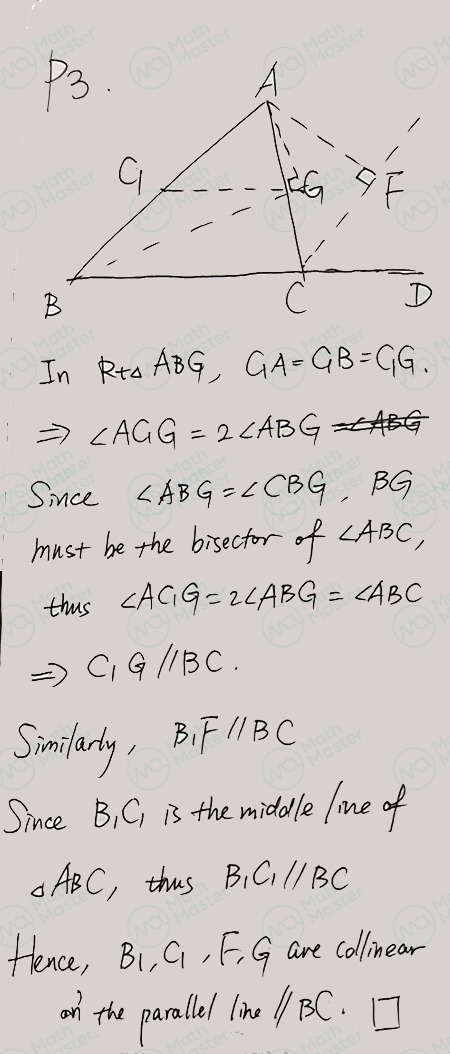 P3.
A
C₁
G
F
B
C
D
In Rt△ ABG, C₁A = C₁B = C₁G.
⇒ ∠AC₁G = 2∠ABG = ∠ABG
Since ∠ABG = ∠CBG, BG
must be the bisector of ∠ABC,
thus ∠AC₁G = 2∠ABG = ∠ABC
⇒ C₁G // BC.
Similarly, B₁F // BC
Since B₁C₁ is the middle line of
△ABC, thus B₁C₁ // BC
Hence, B₁, C₁, F, G are collinear
on the parallel line // BC. □
Math Master